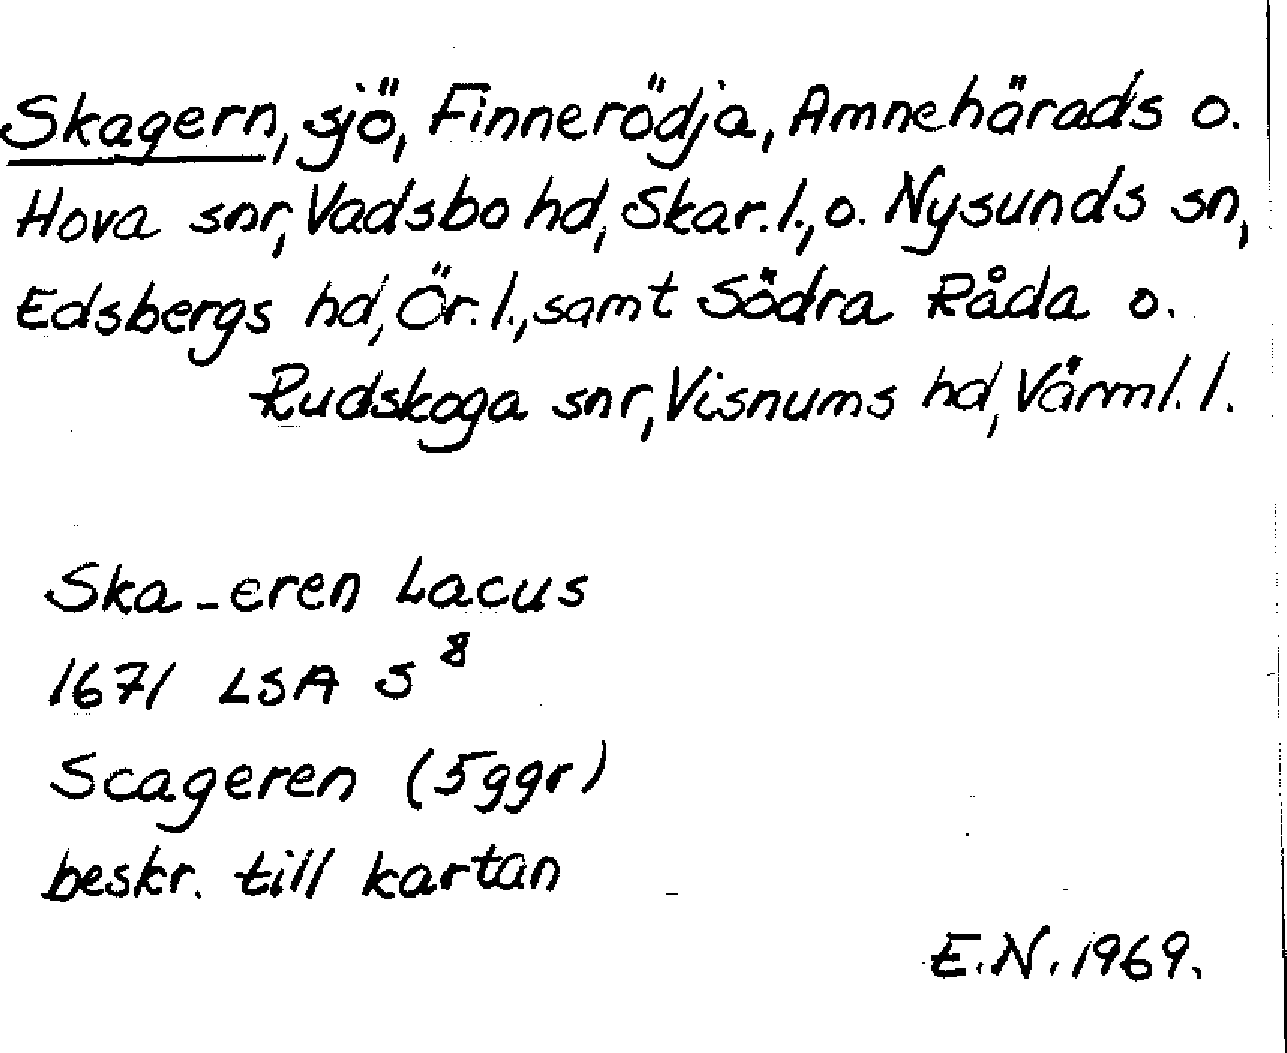 Skagern, sjö, Finnerödja, Amnehärads o.
Hova snr, Vadsbo hd, Skar. l., o. Nysunds sn,
Edsbergs hd, Ör. l., samt Södra Råda o.
Rudskoga snr, Visnums hd, Värml. l.
Ska-eren Lacus
1671 LSA S⁸
Scageren (5ggr)
beskr. till kartan
E.N. 1969.